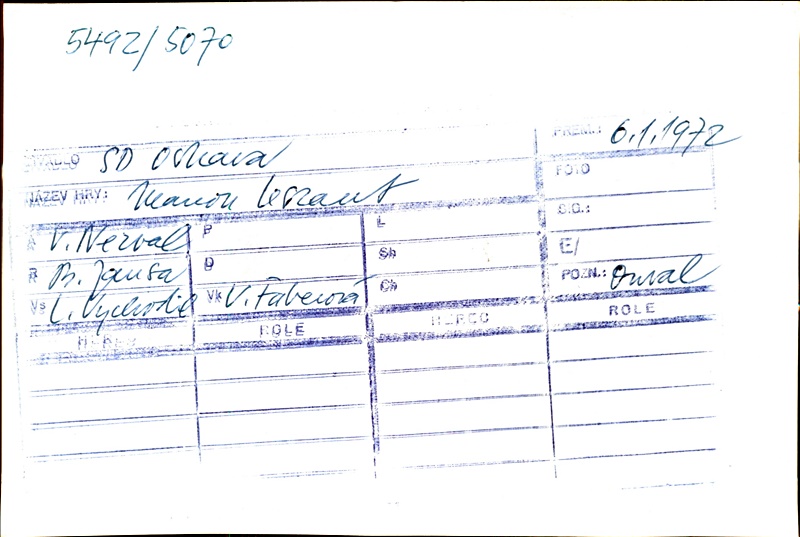 5492/5070
PREM.: 6.1.1972
DIVADLO SD Ostrava
FOTO
NÁZEV HRY: Manon Lescaut
S.G.:
A V. Nezval P L
E/
R B. Jansa D Sh
POZN.: Orval
Vs L. Vychodil Vk V. Fáberová Ch
HEREC ROLE HEREC ROLE